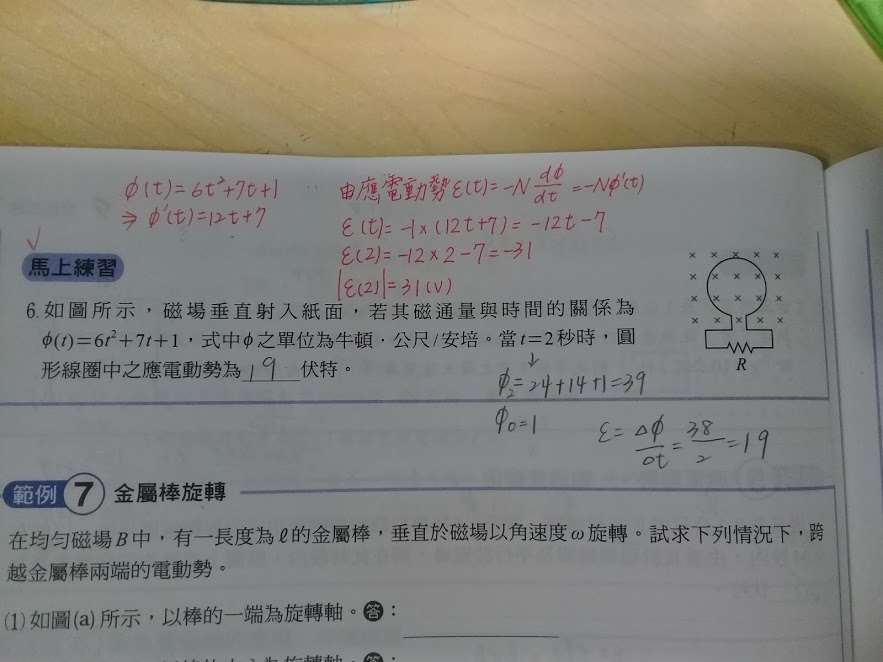 φ(t)=6t²+7t+1
⇒ φ'(t)=12t+7
由應電動勢 ε(t)=-N dφ/dt =-Nφ'(t)
ε(t)=-1×(12t+7)=-12t-7
ε(2)=-12×2-7=-31
|ε(2)|=31(V)
馬上練習
6. 如圖所示，磁場垂直射入紙面，若其磁通量與時間的關係為
φ(t)=6t²+7t+1，式中φ之單位為牛頓·公尺/安培。當t=2秒時，圓
形線圈中之應電動勢為 19 伏特。
R
φ₂=24+14+1=39
φ₀=1
ε=Δφ/Δt=38/2=19
範例 7 金屬棒旋轉
在均勻磁場B中，有一長度為ℓ的金屬棒，垂直於磁場以角速度ω旋轉。試求下列情況下，跨
越金屬棒兩端的電動勢。
(1)如圖(a)所示，以棒的一端為旋轉軸。答：